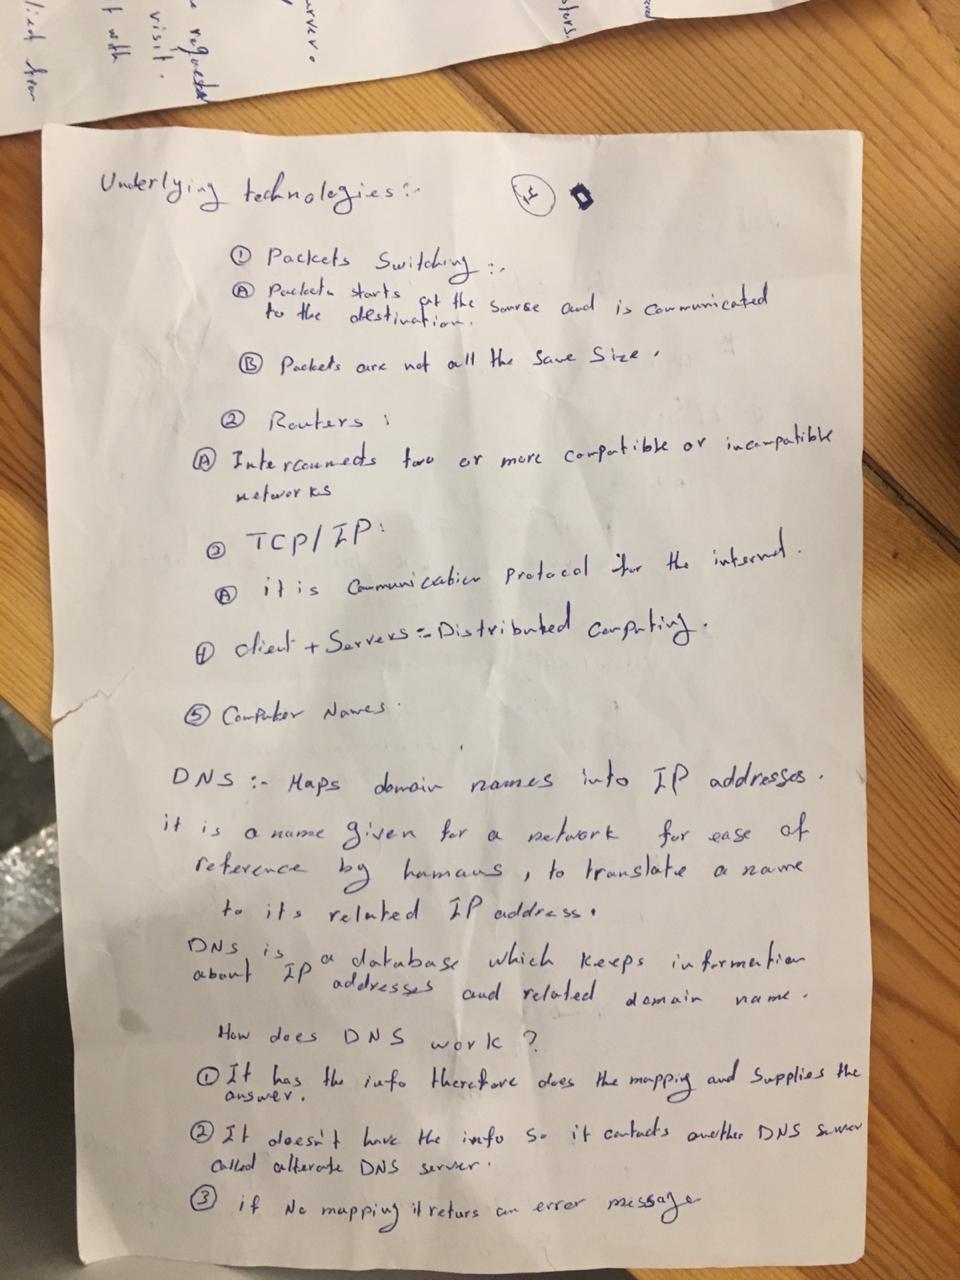 urver.
stors.
e requested
visit.
t with
lied from
Underlying technologies:-
① Packets Switching :-
Ⓐ Packets starts at the sourse and is communicated
to the destination.
Ⓑ Packets are not all the Same Size.
② Routers :
Ⓐ Interconnects two or more compatible or incompatible
networks
③ TCP/IP:
Ⓐ it is Communication Protocol for the internet.
④ Client + Servers :- Distributed Computing.
⑤ Computer Names.
DNS :- Maps domain names into IP addresses.
it is a name given for a network for ease of
reference by humans, to translate a name
to its related IP address.
DNS is a database which keeps information
about IP addresses and related domain name.
How does DNS work ?
① It has the info therefore does the mapping and Supplies the
answer.
② It doesn't have the info so it contacts another DNS server
called alterate DNS server.
③ if No mapping it returs an error message